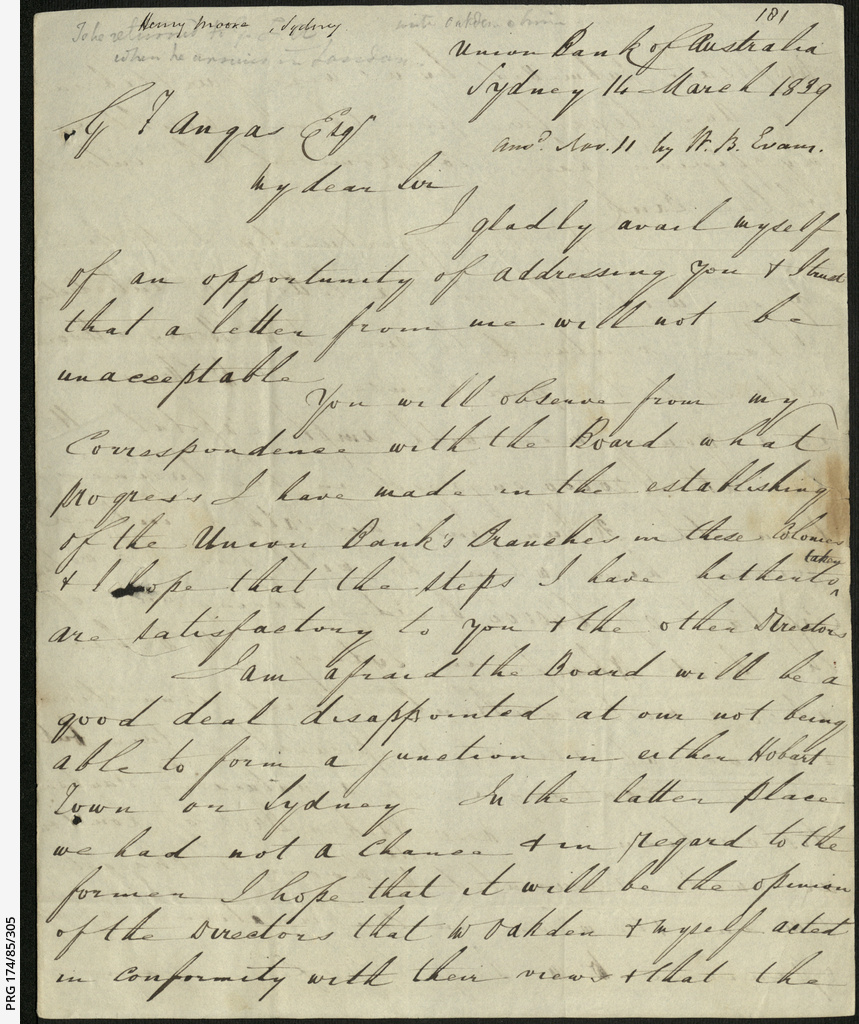 181
Henry Moore, Sydney
To be returned to
when he arrives in London
Union Bank of Australia
Sydney 14 March 1839
G F Angas Esqr
ansd. Nov. 11 by W. B. Evans.
My dear Sir
I gladly avail myself
of an opportunity of addressing you & I trust
that a letter from me will not be
unacceptable
You will observe from my
Correspondence with the Board what
progress I have made in the establishing
of the Union Bank's Branches in these Colonies
& I hope that the steps I have hitherto taken
are satisfactory to you & the other Directors
I am afraid the Board will be a
good deal disappointed at our not being
able to form a junction in either Hobart
Town or Sydney In the latter place
we had not a chance & in regard to the
former I hope that it will be the opinion
of the Directors that Mr Oakden & myself acted
in conformity with their views & that the
PRG 174/85/305